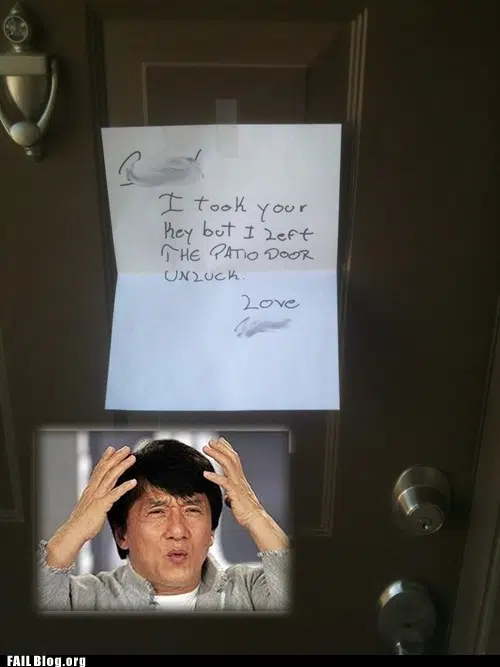 I took your
key but I Left
THE PATIO DOOR
UNLUCK.
Love
FAILBlog.org